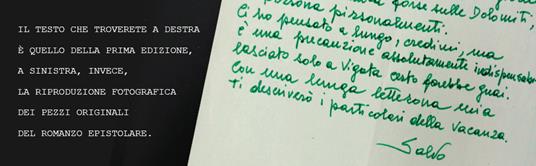 IL TESTO CHE TROVERETE A DESTRA
È QUELLO DELLA PRIMA EDIZIONE,
A SINISTRA, INVECE,
LA RIPRODUZIONE FOTOGRAFICA
DEI PEZZI ORIGINALI
DEL ROMANZO EPISTOLARE.
forse sulle Dolomiti,
pissonalmenti.
Ci ho pensato a lungo, credimi, ma
è una precauzione assolutamente indispensabi
lasciato solo a Vigata certo farebbe guai.
Con una lunga letterona mia
ti descriverò i particolari della vacanza.
Salvo